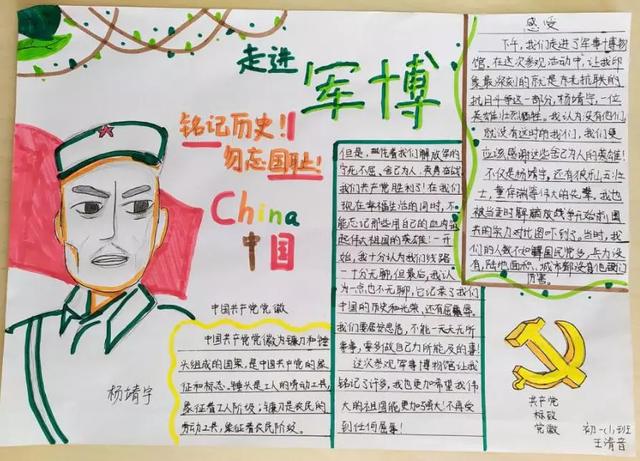 走进
军博
铭记历史!
勿忘国耻!
China
中国
杨靖宇
中国共产党党徽
中国共产党党徽为镰刀和锤
头组成的图案,是中国共产党的象
征和标志。锤头是工人的劳动工具,
象征着工人阶级;镰刀是农民的
劳动工具,象征着农民阶级。
感受
下午,我们走进了军事博物
馆。在这次参观活动中,让我印
象最深刻的就是东北抗联的
抗日斗争这一部分。杨靖宇,一位
英雄壮烈牺牲。我认为没有他们,
就没有这时的我们,我们更
应该感谢这些舍己为人的英雄!
不仅是杨靖宇,还有狼牙山五壮
士,董存瑞等伟大的先辈。我也
被当时解放战争开始前国
共的实力对比图吓到了。当时,我
们的人数不如国民党多,兵力没
有,陆地面积、城市都没有他们
厉害。
但是,
我们共产党胜利了!在我们
现在幸福生活的同时,不
能忘记那些用自己的血肉
起伟大祖国的英雄!一开
始,我十分认为我们线路
十分无聊,但最后,我认
为一点也不无聊,它记录了我们
中国的历史和光荣,还有屈辱。
我们要居安思危,不能一天天无所
事事,要多做自己力所能及的事!
这次参观军事博物馆让我
铭记了许多,我也更加希望我伟
大的祖国能更加强大!不再受
到任何屈辱!
共产党
标致
党徽
初一(1)班
王清音